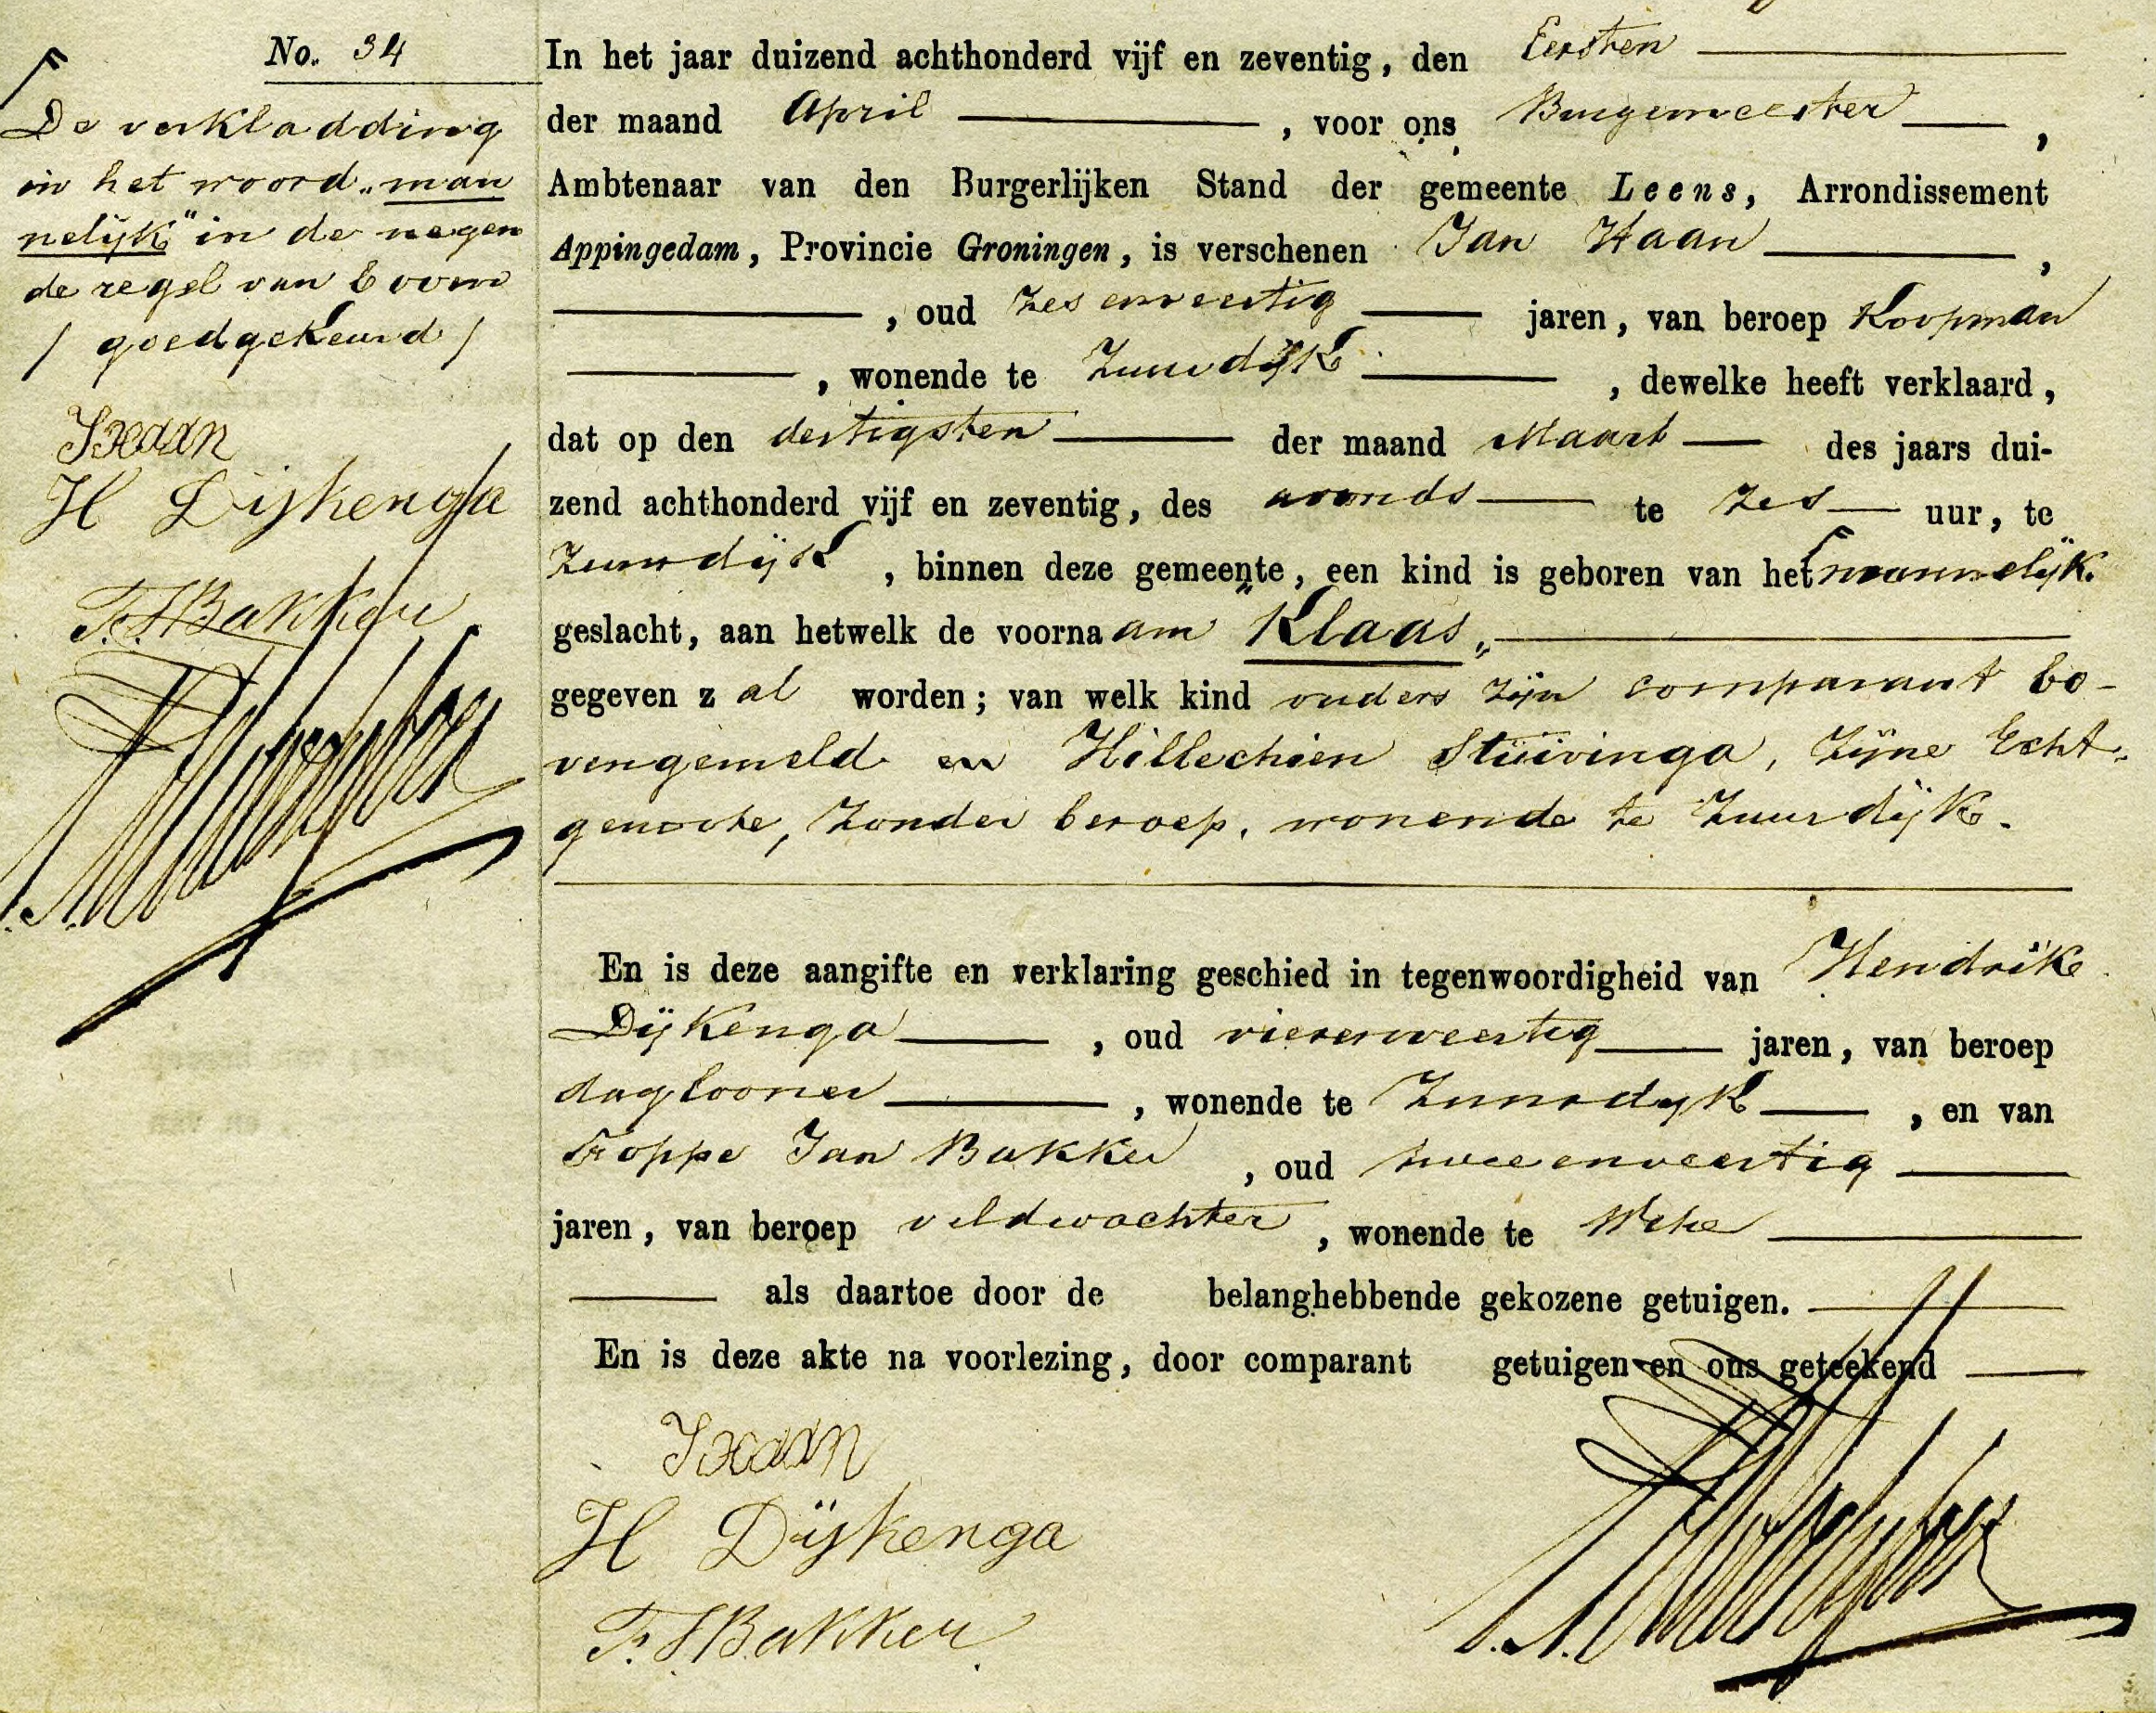 No. 34
De verkladding
in het woord „man
nelijk" in de negen
de regel van boven
/ goedgekeurd /
JHaan
H Dijkenga
F. J Bakker
In het jaar duizend achthonderd vijf en zeventig, den Eersten
der maand April , voor ons Burgemeester ,
Ambtenaar van den Burgerlijken Stand der gemeente Leens, Arrondissement
Appingedam, Provincie Groningen, is verschenen Jan Haan ,
, oud zesenveertig jaren, van beroep Koopman
, wonende te Zuurdijk , dewelke heeft verklaard,
dat op den dertigsten der maand Maart des jaars dui-
zend achthonderd vijf en zeventig, des avonds te zes uur, te
Zuurdijk , binnen deze gemeente, een kind is geboren van het mannelijk
geslacht, aan hetwelk de voornaam „Klaas„
gegeven zal worden; van welk kind ouders zijn comparant bo-
vengemeld en Hillechien Stuivinga, zijne Echt-
genoote, zonder beroep, wonende te Zuurdijk.
En is deze aangifte en verklaring geschied in tegenwoordigheid van Hendrik
Dijkenga , oud vierenveertig jaren, van beroep
daglooner , wonende te Zuurdijk , en van
Foppe Jan Bakker , oud tweeenveertig
jaren, van beroep veldwachter , wonende te Wehe
als daartoe door de belanghebbende gekozene getuigen.
En is deze akte na voorlezing, door comparant getuigen en ons geteekend
JHaan
H Dijkenga
F. J Bakker